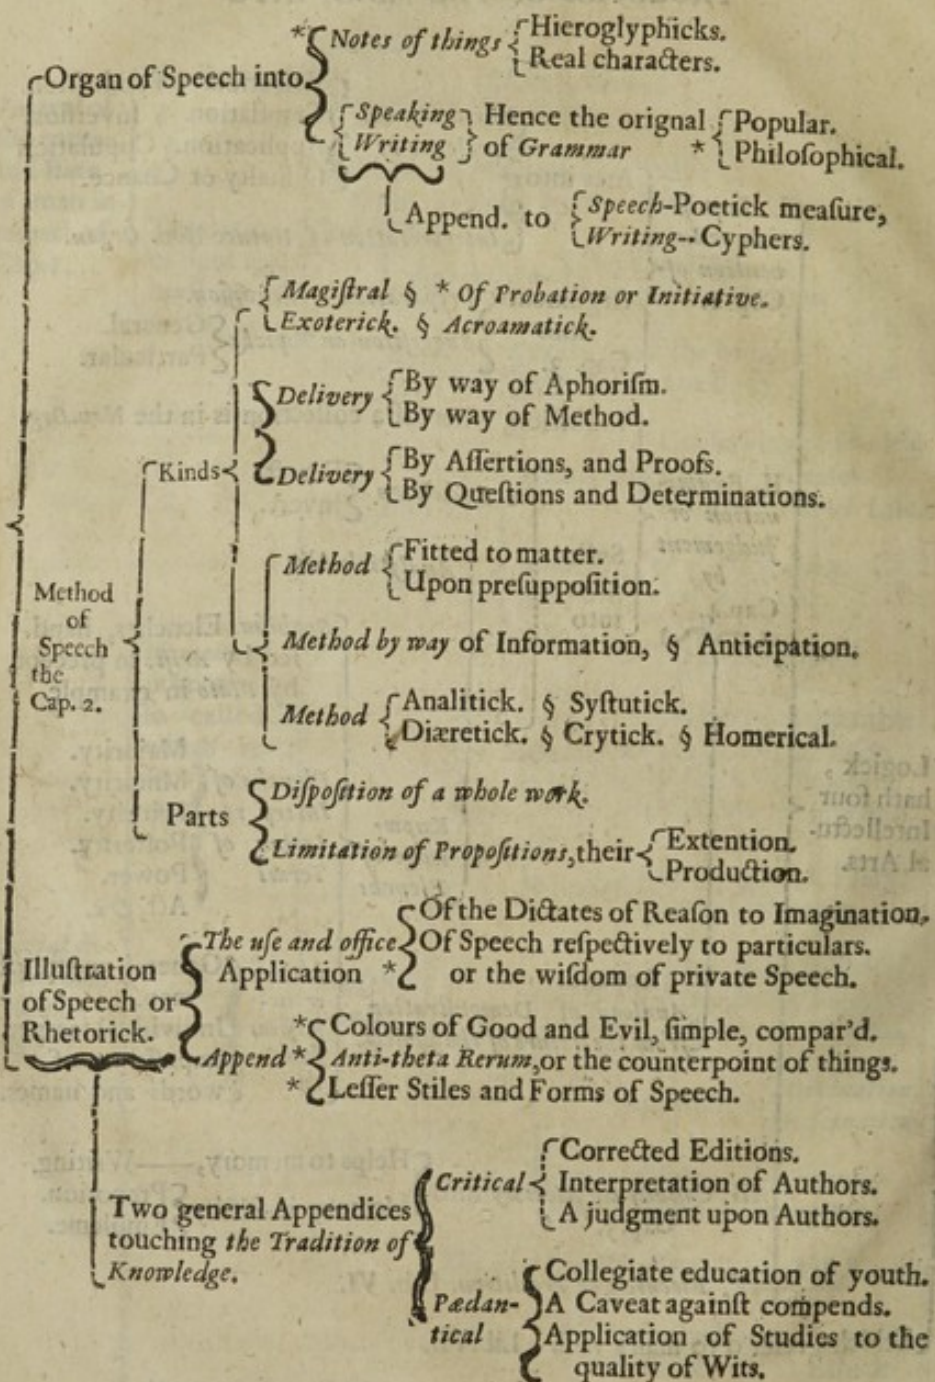 * Notes of things Hieroglyphicks.
Real characters.
Organ of Speech into
Speaking Hence the orignal Popular.
Writing of Grammar * Philoſophical.
Append. to Speech-Poetick meaſure,
Writing-- Cyphers.
Magiſtral § * Of Probation or Initiative.
Exoterick. § Acroamatick.
Delivery By way of Aphoriſm.
By way of Method.
Kinds
Delivery By Aſſertions, and Proofs.
By Queſtions and Determinations.
Method Fitted to matter.
Upon preſuppoſition.
Method
of
Speech
the
Cap. 2.
Method by way of Information, § Anticipation.
Method Analitick. § Syſtutick.
Diæretick. § Crytick. § Homerical.
Parts Diſpoſition of a whole work.
Limitation of Propoſitions, their Extention.
Production.
Illuſtration
of Speech or
Rhetorick.
The uſe and office Of the Dictates of Reaſon to Imagination.
Application * Of Speech reſpectively to particulars.
or the wiſdom of private Speech.
* Colours of Good and Evil, ſimple, compar'd.
Append * Anti-theta Rerum, or the counterpoint of things.
* Leſſer Stiles and Forms of Speech.
Two general Appendices
touching the Tradition of
Knowledge.
Corrected Editions.
Critical Interpretation of Authors.
A judgment upon Authors.
Collegiate education of youth.
Pædan- A Caveat againſt compends.
tical Application of Studies to the
quality of Wits.